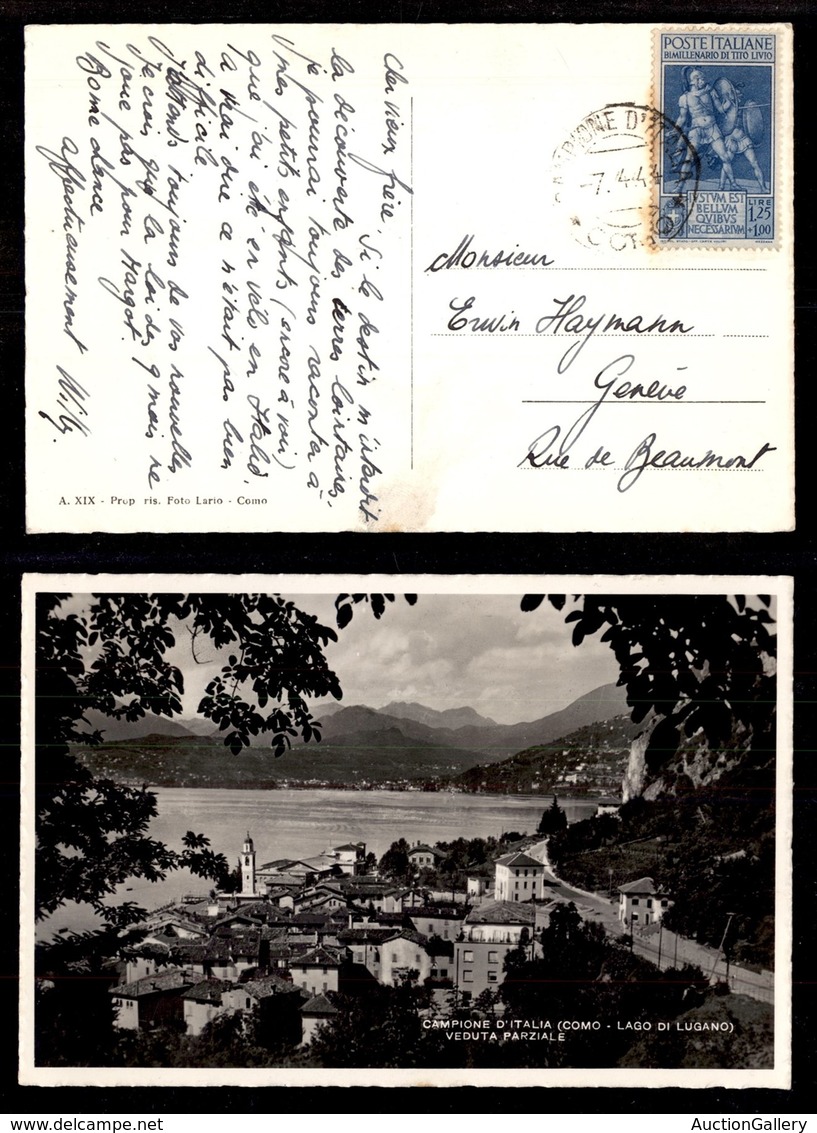 Cher vieux frère, Si le destin m'interdit
la découverte des terres lointaines,
je pourrai toujours raconter à
mes petits enfants (encore à voir)
que j'ai été en vélo en Italie,
à vrai dire ce n'était pas bien
difficile
J'attends toujours de vos nouvelles
Je crois que la loi des 9 mois ne
joue pas pour Margot.
Bonne chance
affectueusement Willy
A. XIX - Prop ris. Foto Lario - Como
POSTE ITALIANE
BIMILLENARIO DI TITO LIVIO
IVSTVM EST
BELLVM
QVIBVS
NECESSARIVM
LIRE
1,25
+1,00
CAMPIONE D'ITALIA
-7.4.44
Monsieur
Erwin Haymann
Genève
Rue de Beaumont
CAMPIONE D'ITALIA (COMO - LAGO DI LUGANO)
VEDUTA PARZIALE
AuctionGallery